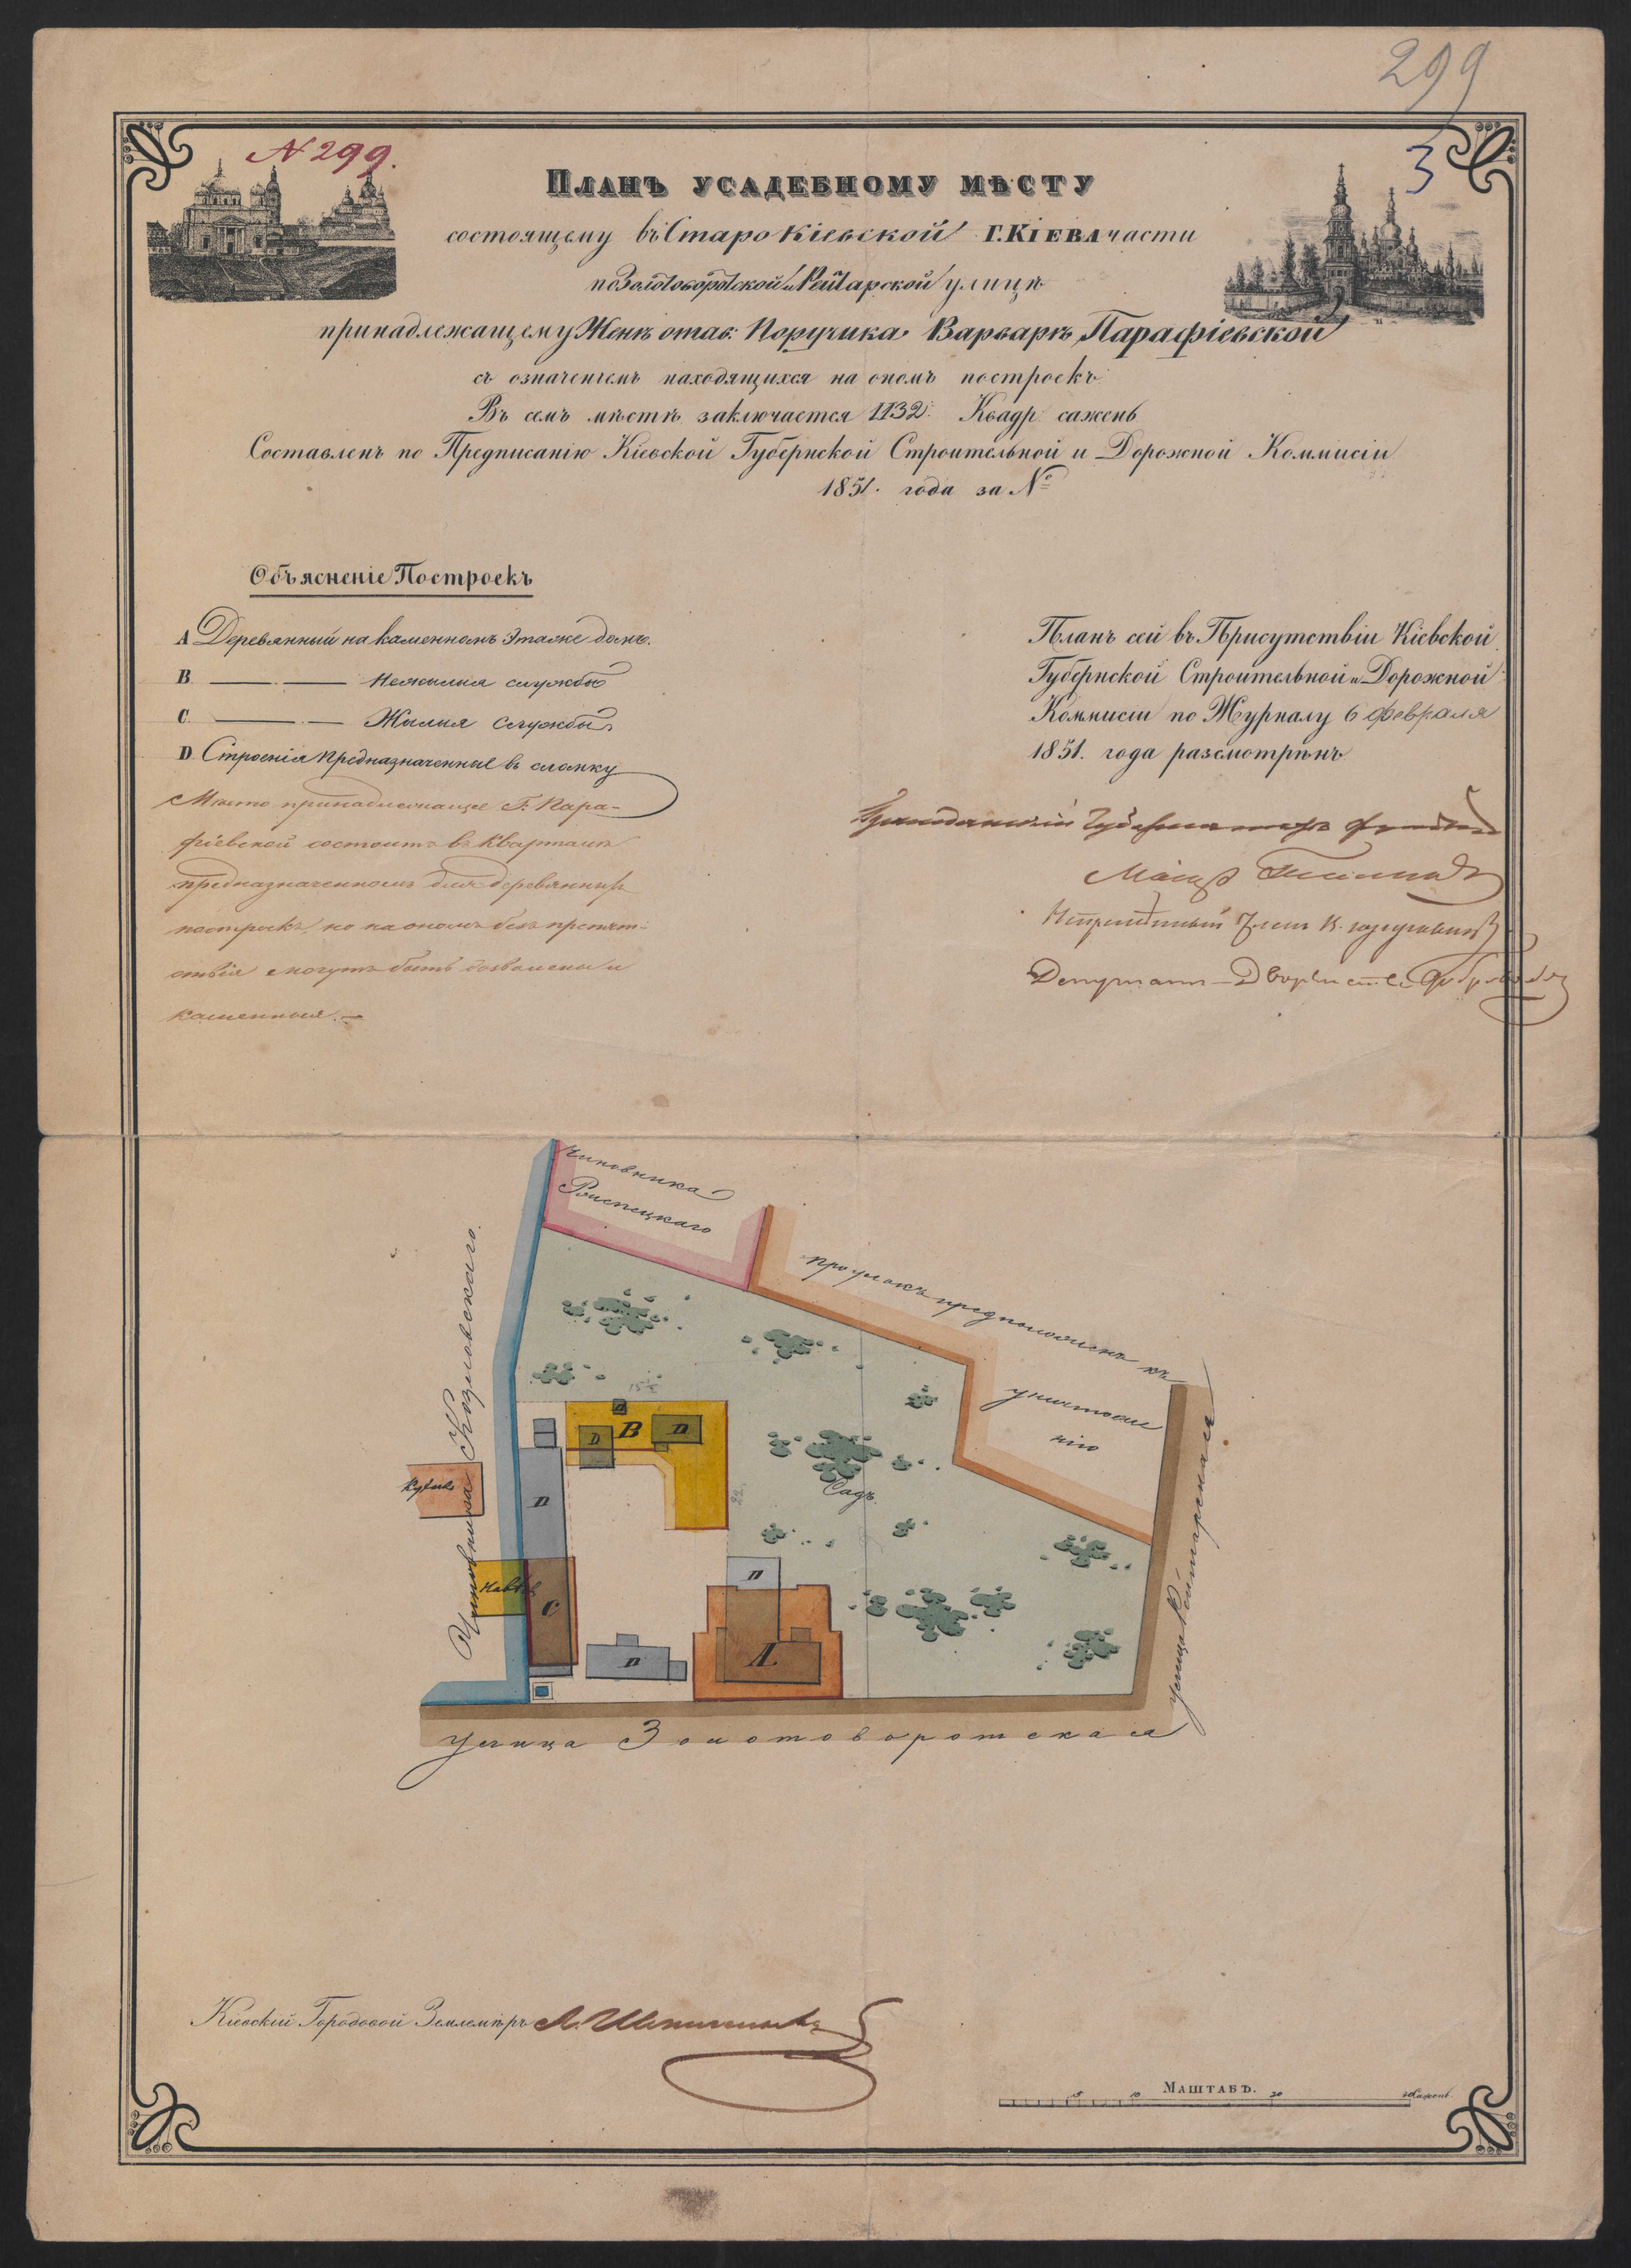 299
N 299.
3
Планъ усадебному мѣсту
состоящему въ Старокіевской г. Кіева части
по Золотоворотской и Рейтарской улицѣ
принадлежащему Женѣ отав: Поручика Варварѣ Парафіевской
съ означеніемъ находящихся на ономъ построекъ
Въ семъ мѣстѣ заключается 1132: Квадр: сажень
Составленъ по Предписанію Кіевской Губернской Строительной и Дорожной Коммисіи
1851. года за №
Объясненіе Построекъ
А Деревянный на каменномъ этаже домъ.
B — Нежилыя службы
C — Жилыя службы
D Строенія предназначенные въ сломку
Место принадлежащее Г: Пара-
фіевской состоитъ въ Кварталѣ
предназначенномъ для деревянныхъ
построекъ, но на ономъ безъ препят-
ствія могутъ быть дозволены и
каменныя. —
Планъ сей въ Присутствіи Кіевской
Губернской Строительной и Дорожной
Коммисіи по Журналу 6 февраля
1851. года разсмотрѣнъ
Гражданскій Губернаторъ
Маіоръ
Непремѣнный Членъ К.
Депутатъ Дворянства
Чиновника
проулокъ предположенъ къ
уничтоже
нію
Чиновника Козловскаго.
D
D
B
D
15½
22
Кухня
D
Навѣсъ
C
D
D
А
Садъ.
улица Рейтарская
Улица Золотоворотская
Кіевскій Городовой Землемѣръ
Масштабъ.
5 10 20 30 Сажень.